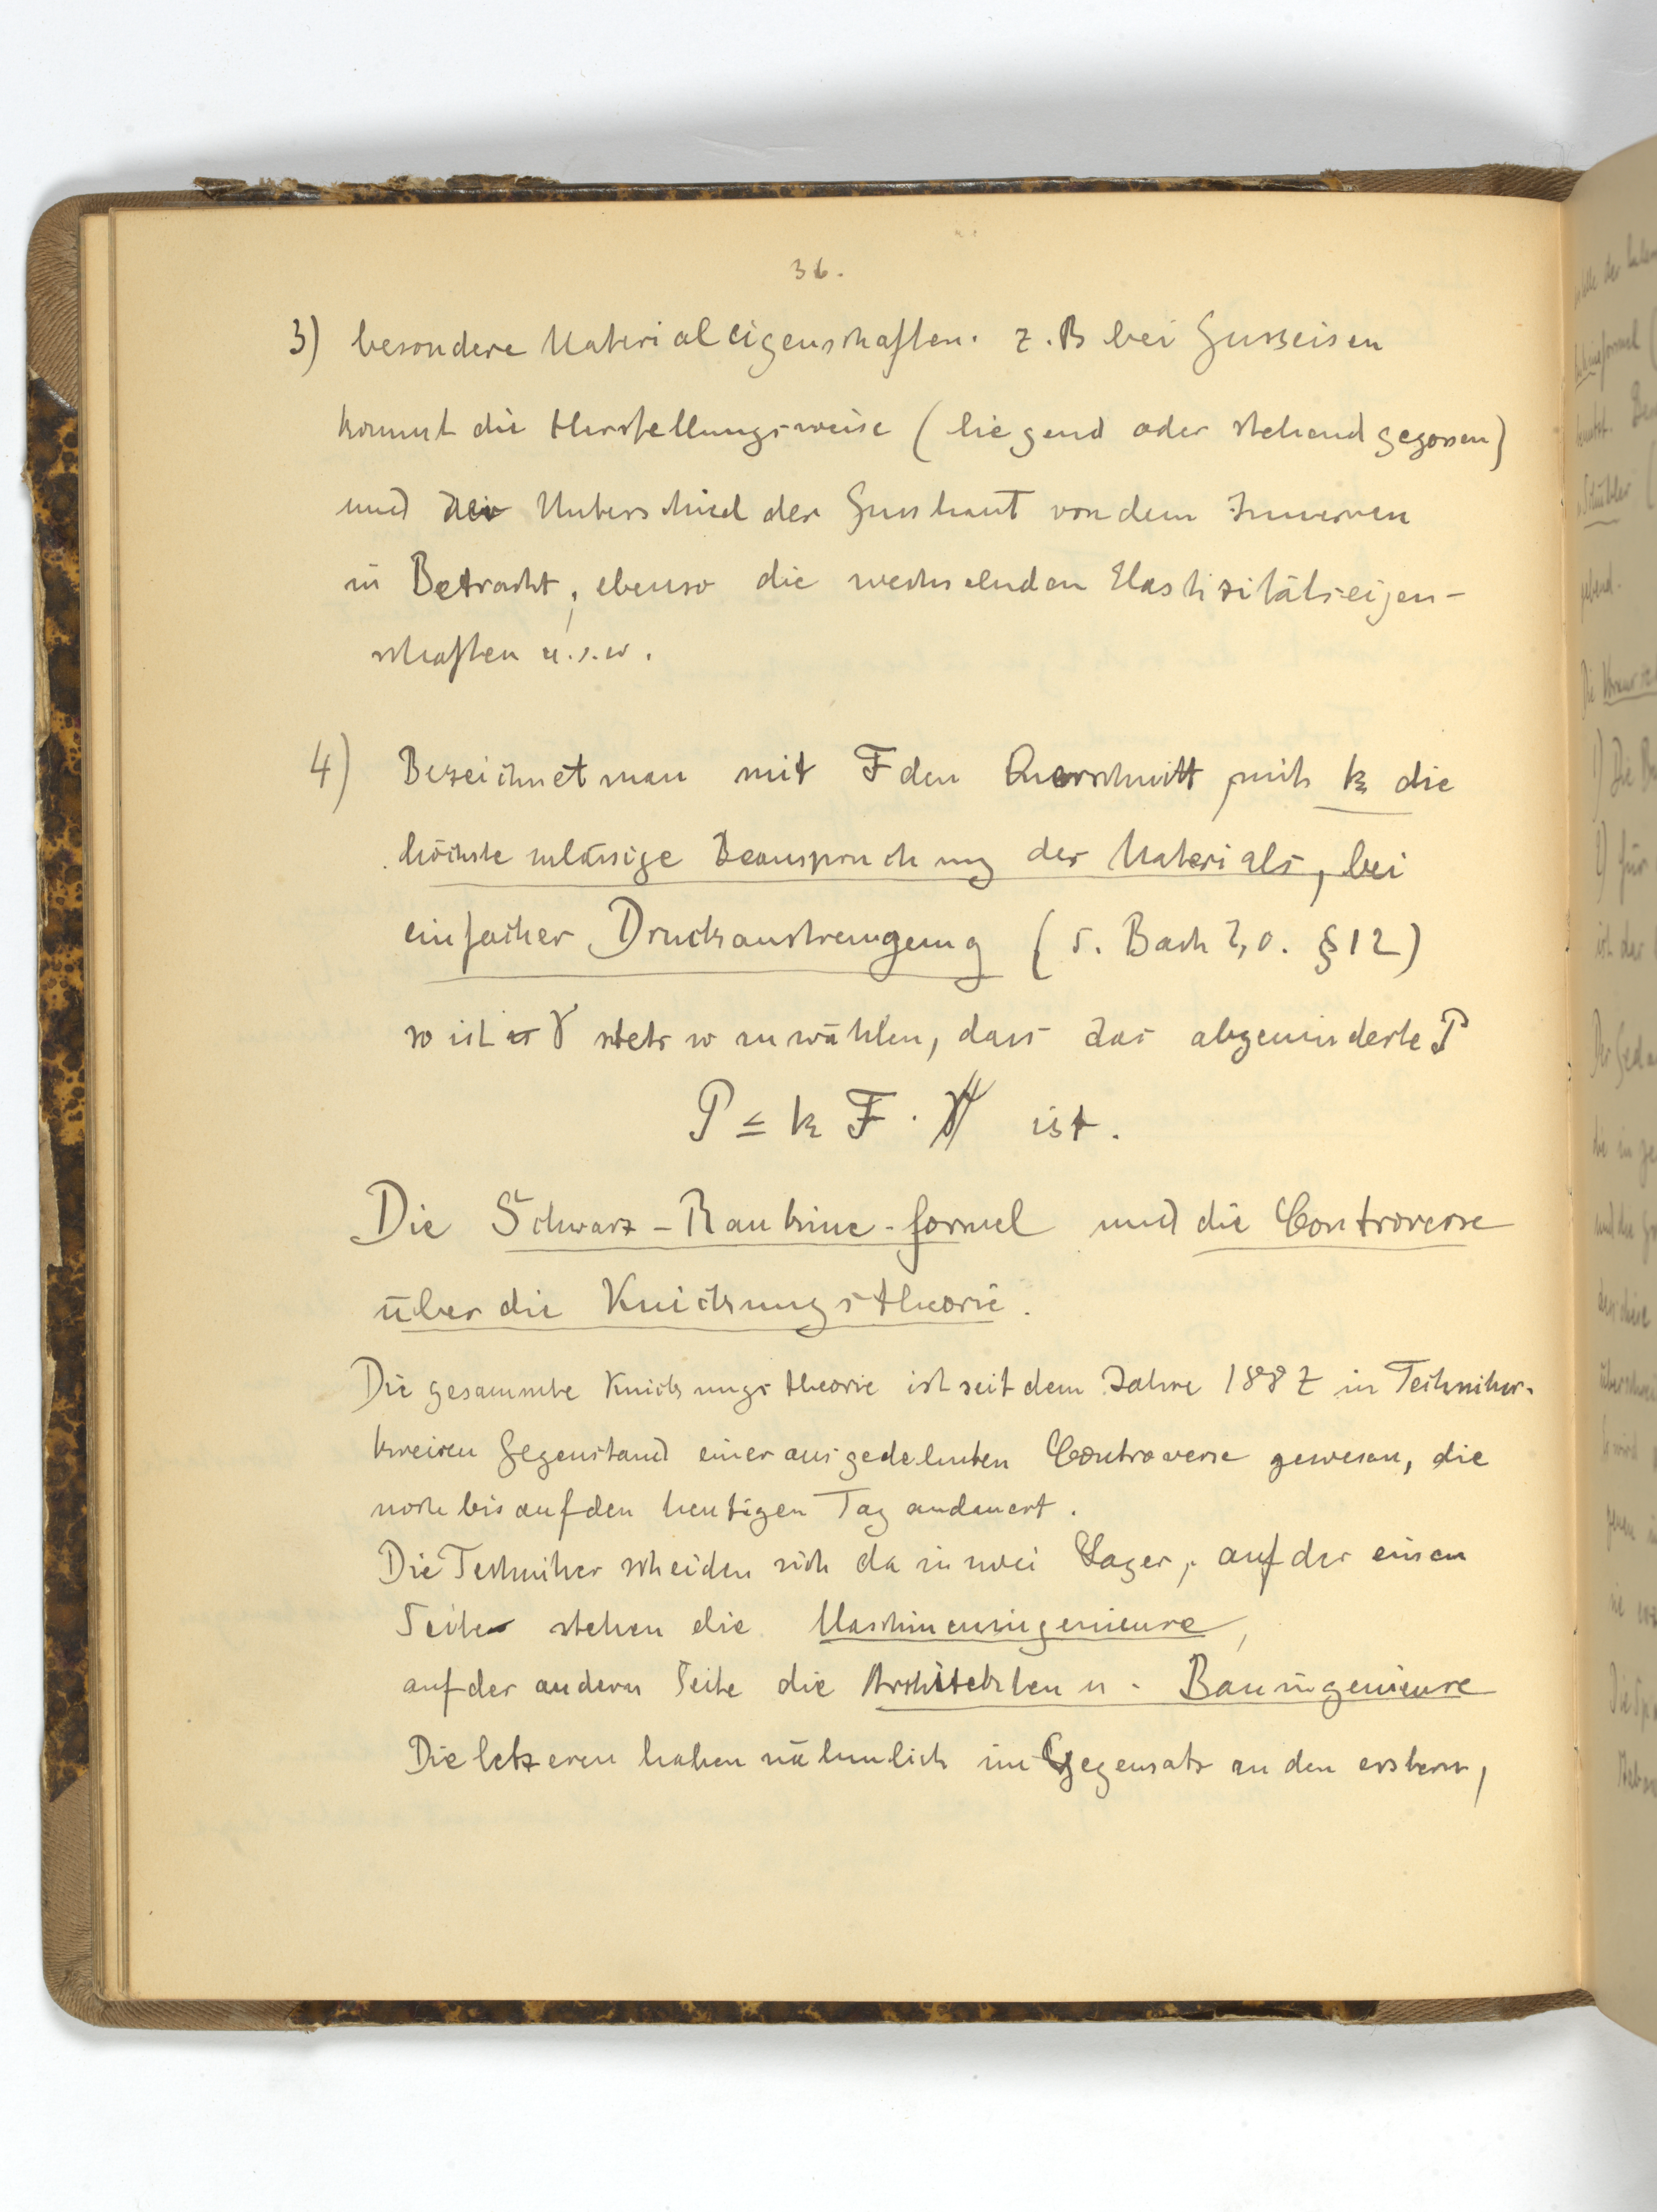 36.
3) besondere Materialeigenschaften. z.B bei Gusseisen
kommt die Herstellungsweise (liegend oder stehend gegossen)
und der Unterschied der Gusshaut von dem Inneren
in Betracht, ebenso die wechselnden Elastizitätseigen-
schaften u.s.w.
4) Bezeichnet man mit F den Querschnitt, mit k die
höchste zulässige Beanspruchung des Materials, bei
einfacher Druckanstrengung (s. Bach § 12)
so ist γ stets so zu wählen, dass das abgeminderte P
P ≤ k F · ist.
Die Schwarz-Rankine-formel und die Controverse
über die Knickungstheorie.
Die gesammte Knickungstheorie ist seit dem Jahre 1887 in Techniker-
kreisen Gegenstand einer ausgedehnten Controverse gewesen, die
noch bis auf den heutigen Tag andauert.
Die Techniker scheiden sich da in zwei Lager, auf der einen
Seite stehen die Maschineningenieure,
auf der andern Seite die Architekten u. Bauingenieure
Die letzeren haben nähmlich im Gegensatz zu den erstern,